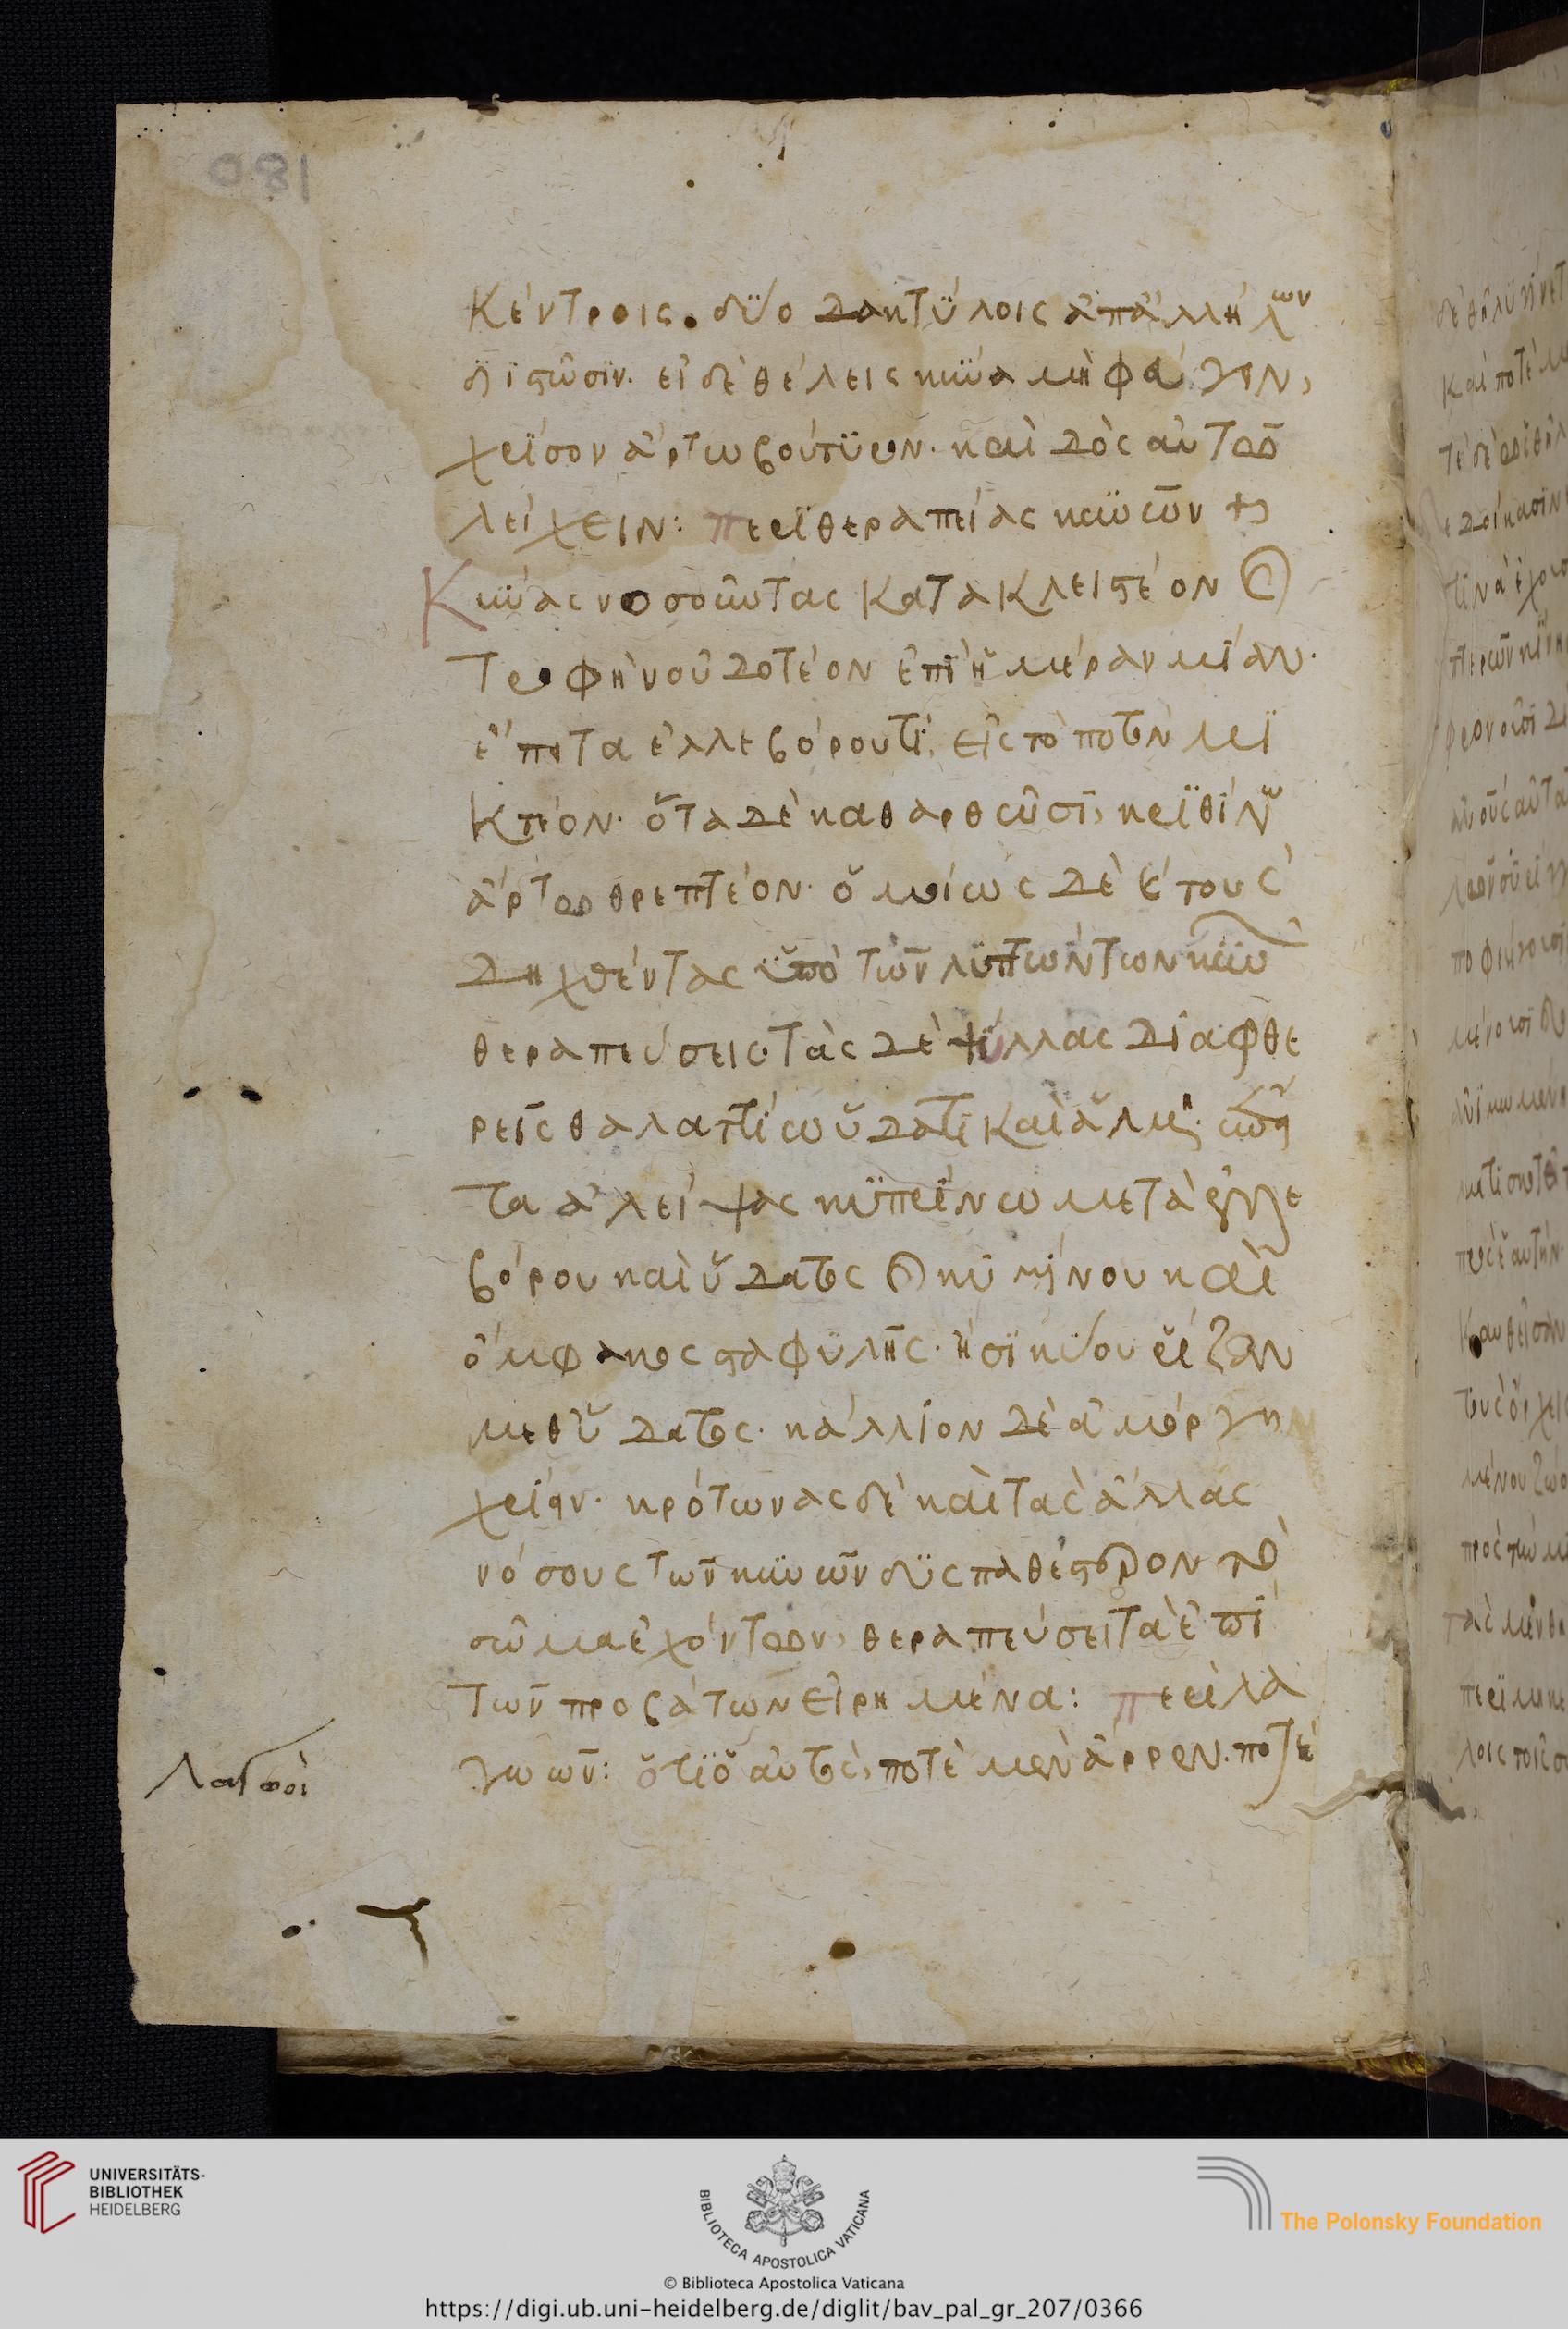 081
κέντροις. δϋο δακτΰλοις ἀπἀλλήλων
διϊστῶσιν. εἰ δὲ θέλεις κΰνα μὴ φαγεῖν,
χρῖσον ἄρτω βούτϋρον. καὶ δὸς αὐτῶ
λείχειν: περῒ θεραπείας κϋνῶν
Κΰνας νοσοῦντας κατακλειστέον καὶ
τροφὴν οὐ δοτέον ἐπῒ ἡμέραν μίαν.
ἔπειτα ἐλλεβόρου τϊ εἰς τὸ ποτὸν μι
κτέον. ὅταν δὲ καθαρθῶσϊ, κρϊθίνω
ἄρτω θρεπτέον. ὁμοίως δὲ καὶ τοὺς
δηχθέντας ὑπὸ τῶν λϋττώντων κϋνῶν
θεραπεύσεις τὰς δὲ ψΰλλας διαφθε
ρεῖς θαλαττίω ὕδατϊ καὶ ἅλμη. εἶτα
τα ἀλείψας κϋπρίνω μετὰ ἐλλε
βόρου καὶ ὕδατος καὶ κυμίνου καὶ
ὄμφακος σταφϋλῆς. ἢ σϊκΰου ῥίζαν
μεθ' ὕδατος. κάλλιον δὲ ἀμόργην
χρίειν. κρότωνας δὲ καὶ τὰς ἄλλας
νόσους τῶν κϋνῶν δϋσπαθέστερον τὸ
σῶμα ἐχόντων, θεραπεύσει τὰ ἐπὶ
τῶν προβάτων εἰρημένα: περὶ λα
γωῶν: ὅτϊ ὁ αὐτὸς, ποτὲ μὲν ἄρρεν. ποτὲ
Λαγωοὶ
UNIVERSITÄTS-
BIBLIOTHEK
HEIDELBERG
BIBLIOTECA APOSTOLICA VATICANA
The Polonsky Foundation
© Biblioteca Apostolica Vaticana
https://digi.ub.uni-heidelberg.de/diglit/bav_pal_gr_207/0366